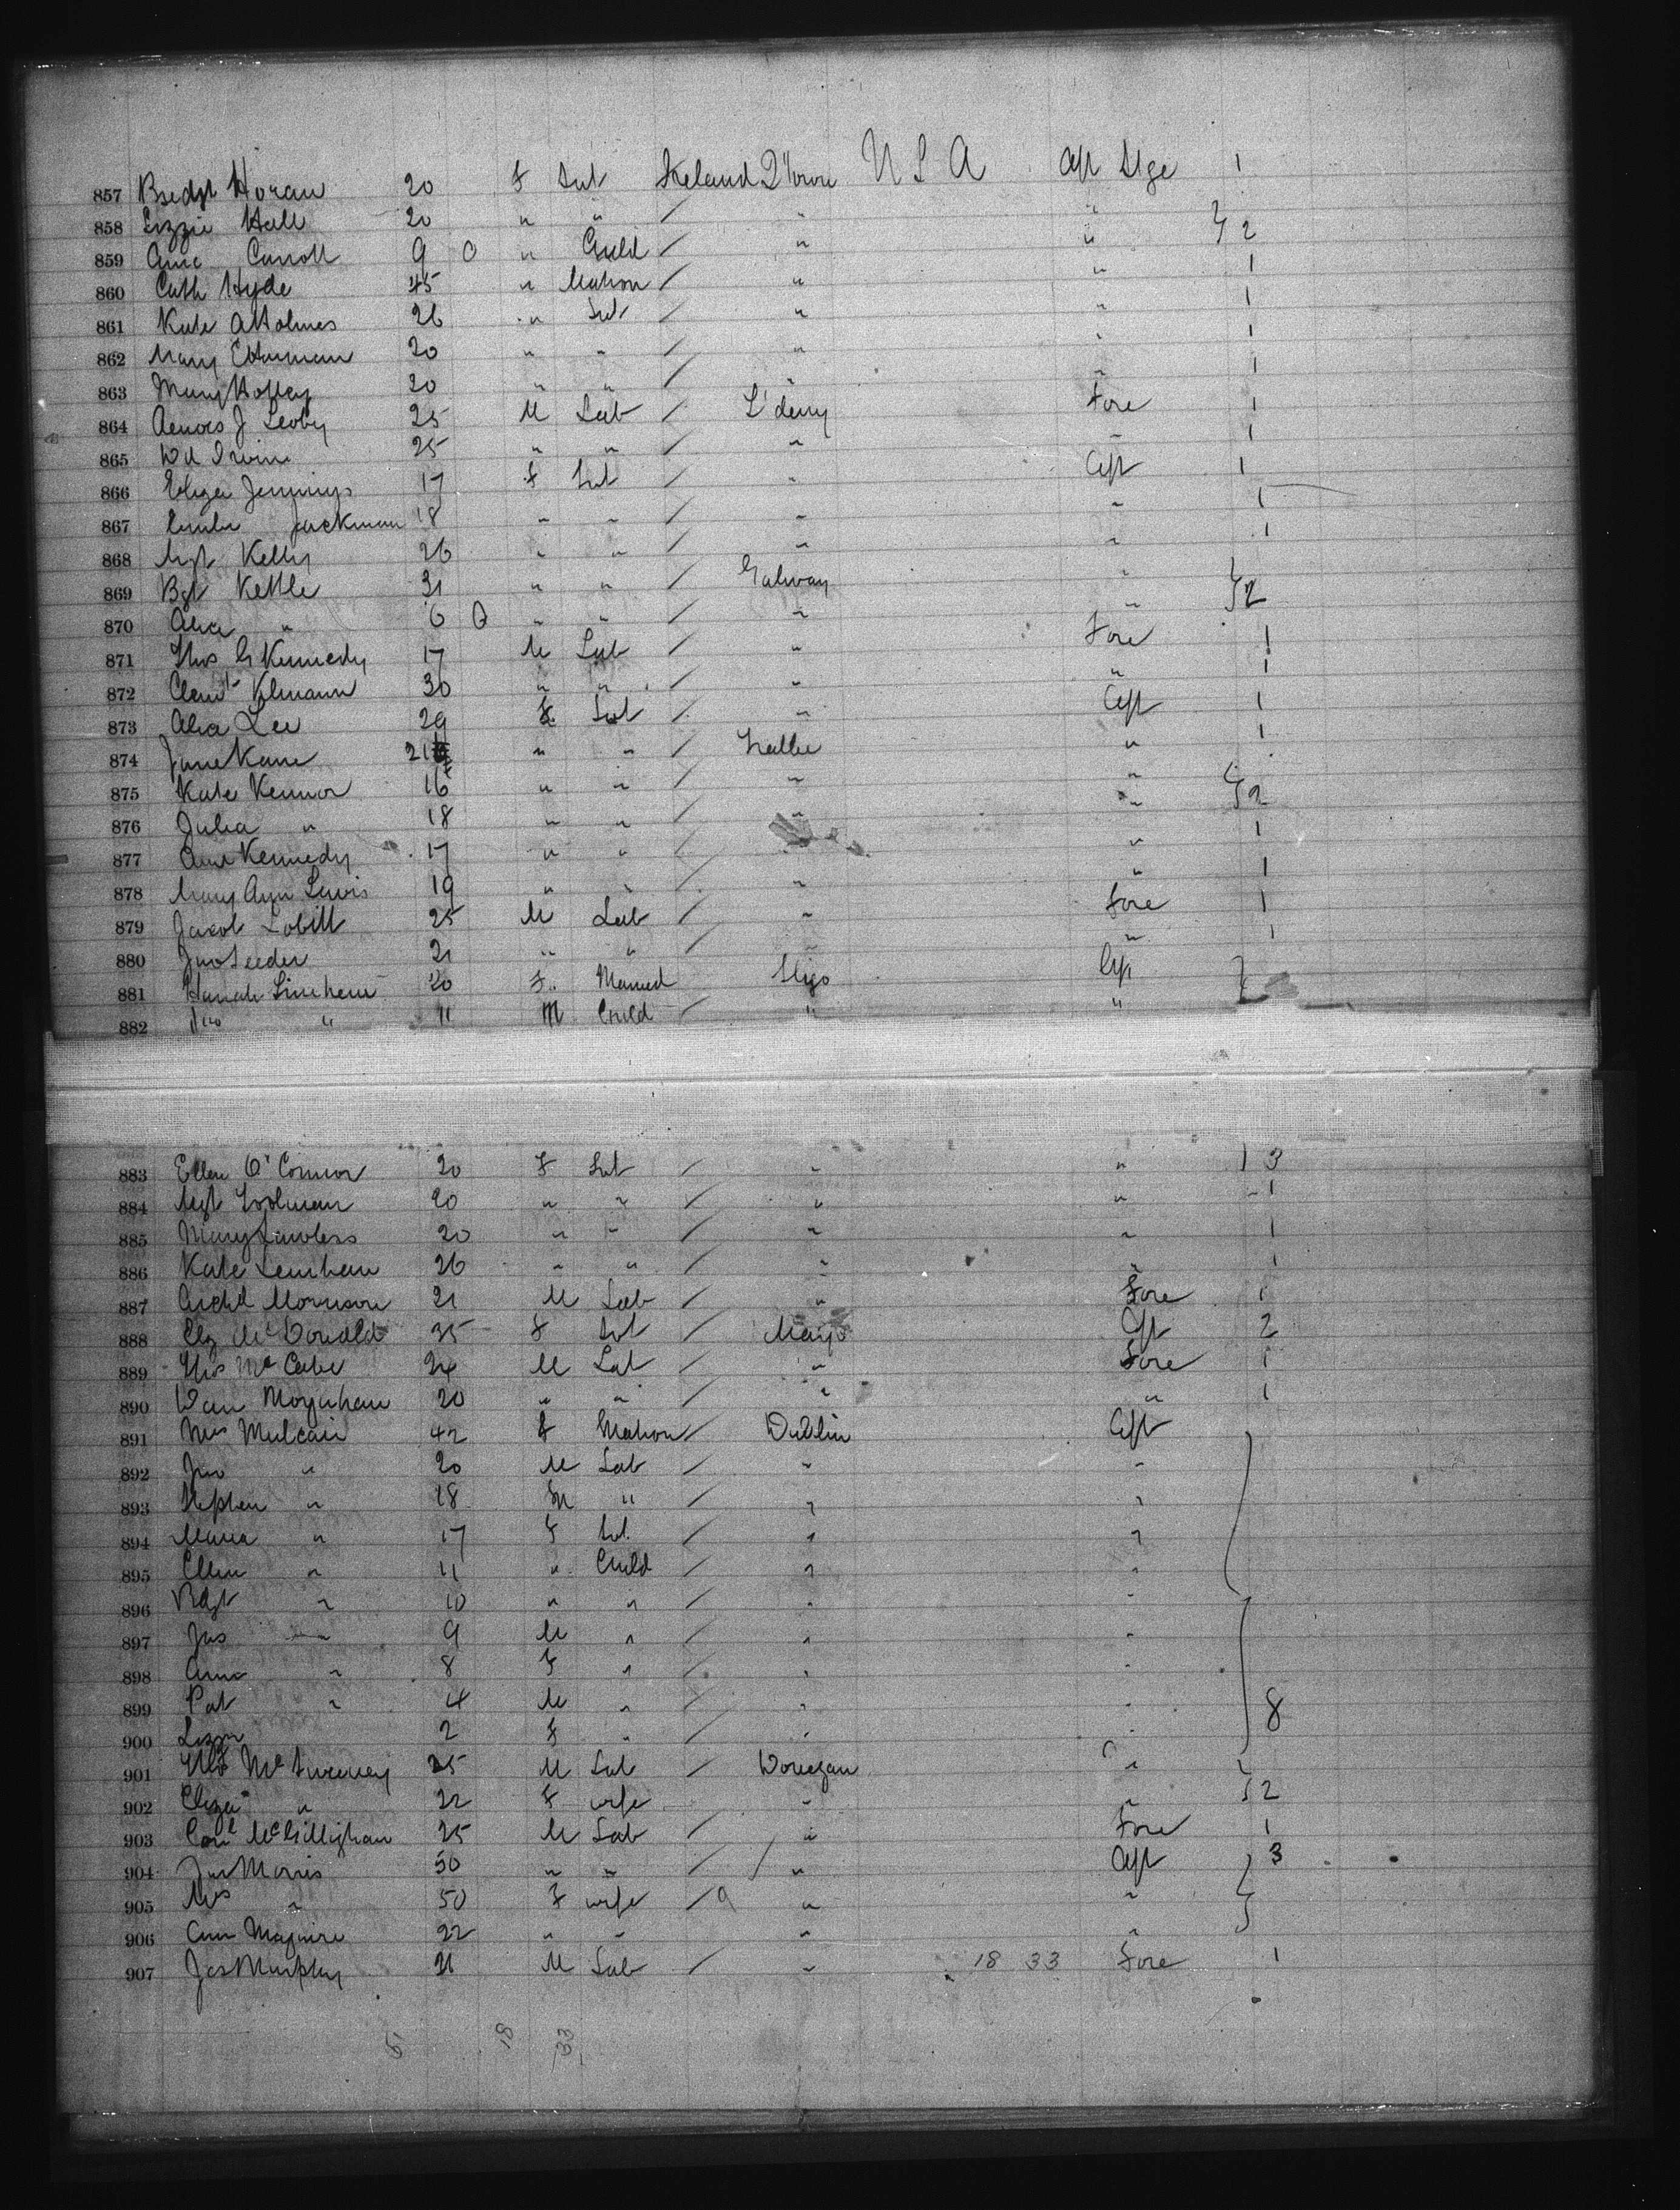 857 Bredgt Horan 20 F Svt Ireland Q'town U S A Aft Stge 1
858 Lizzie Hall 20 " " / " "
859 Anne Carroll 9 0 " Child / " " } 2
860 Cath Hyde 45 " Matron / " " 1
861 Kate A Holmes 26 " Svt / " " 1
862 Mary E Harman 20 " " / " " 1
863 Mary Holley 20 " " / " " 1
864 J 25 M Lab / L'derry Fore 1
865 Wm Irvine 25 " " / " " 1
866 Eliza Jennings 17 F Svt / " Aft 1
867 Jackman 18 " " / " " 1
868 Mgt Kelly 26 " " / " " 1
869 Bgt Kettle 31 " " / Galway "
870 " 6 0 " " / " " } 2
871 Thos G Kennedy 17 M Lab / " Fore 1
872 30 " " / " " 1
873 Lee 29 F Svt / " Aft 1
874 Jane Kane 21 " " / Tralee " 1
875 Kate 16 " " / " "
876 Julia " 18 " " / " " } 2
877 Anne Kennedy 17 " " / " " 1
878 Mary Ann Lewis 19 " " / " " 1
879 Jacob 25 M Lab / " Fore 1
880 Jno Leeder 21 " " / " " 1
881 Hanah 20 F Married Sligo Aft }
882 Jno " 11 M Child / " "
883 Ellen O'Connor 20 F Svt / " " 1 3
884 Mgt 20 " " / " " 1
885 Mary Lawless 20 " " / " " 1
886 Kate Lenihan 26 " " / " " 1
887 Archd Morrison 21 M Lab / " Fore 1
888 Elz McDonald 35 F Svt / Mayo Aft 2
889 Thos McCabe 24 M Lab / " Fore 1
890 Dan Moynahan 20 " " / " " 1
891 Mrs Mulcair 42 F Matron / Dublin Aft
892 Jno " 20 M Lab / " "
893 Stephen " 18 M " / " "
894 Maria " 17 F Svt / " "
895 Ellen " 11 " Child / " "
896 Bdgt " 10 " " / " "
897 Jas " 9 M " / " "
898 Anne " 8 F " / " "
899 Pat " 4 M " / " " 8
900 Lizzie 2 F " / " "
901 McSweeney 25 M Lab / Donegan "
902 Eliza " 22 F wife " " } 2
903 McGillighan 25 M Lab / " Fore 1
904 Jno Morris 50 " " / " Aft 3
905 Mrs " 50 F wife / 9 " "
906 Ann Maguire 22 " " " "
907 Jas Murphy 21 M Lab / " 18 33 Fore 1
18 33